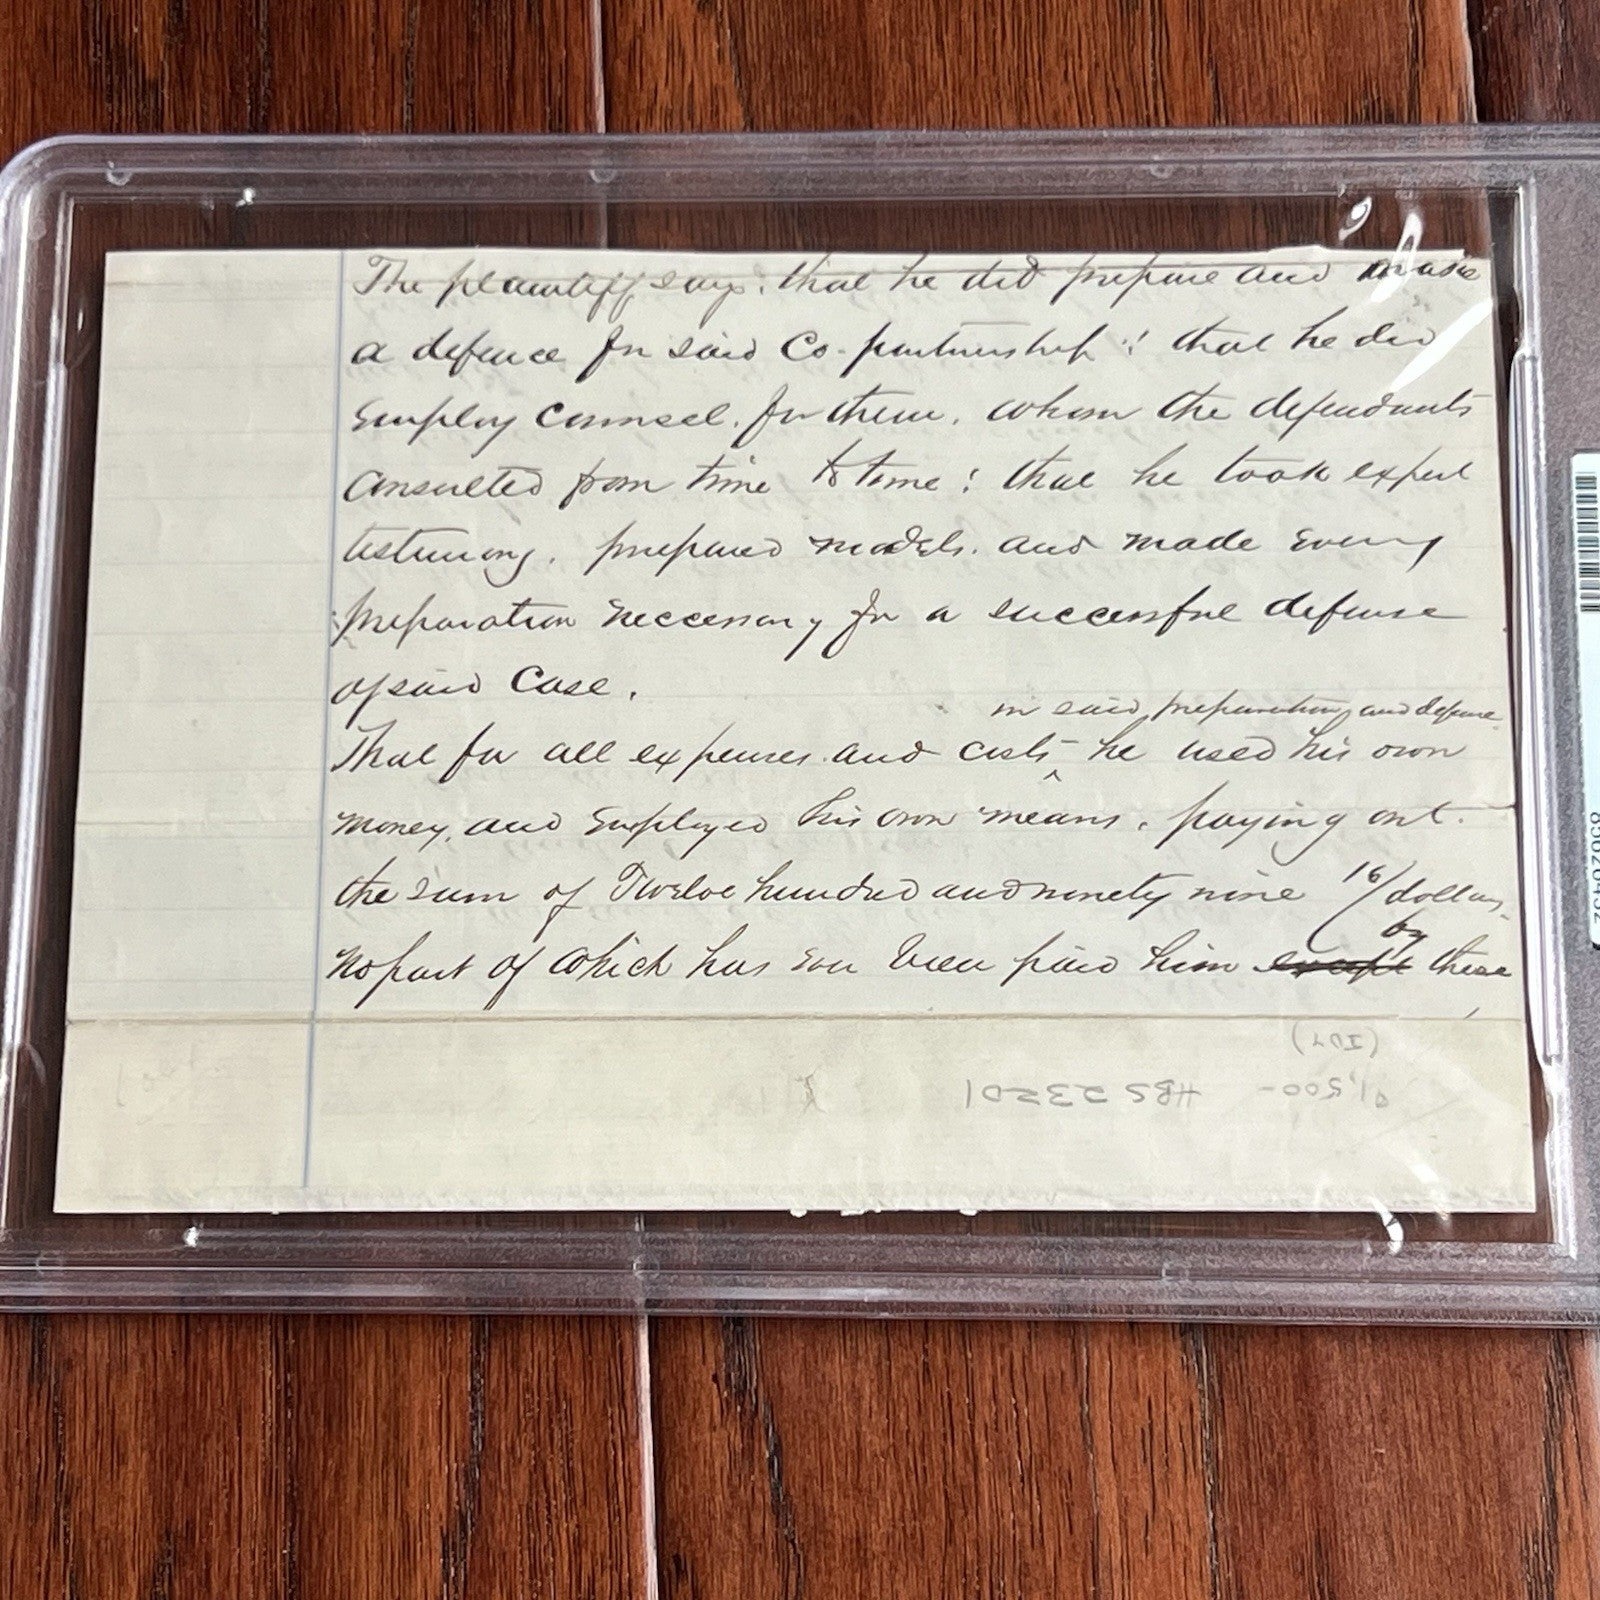 The plaintiff says: that he did prepare and make
a defence for said Co-partnership: that he did
Employ Counsel. for them, whom the defendants
Consulted from time to time: that he took expert
testimony, prepared models. and made Every
preparation neccessary for a successful defense
of said Case.
in said preparation and defense
That for all expenses and costs ^ he used his own
money, and Employed his own means, paying out
the sum of Twelve hundred and ninety nine 16/ dollars,
by
No part of which has ever been paid him except these
(IUT)
HBS 23201